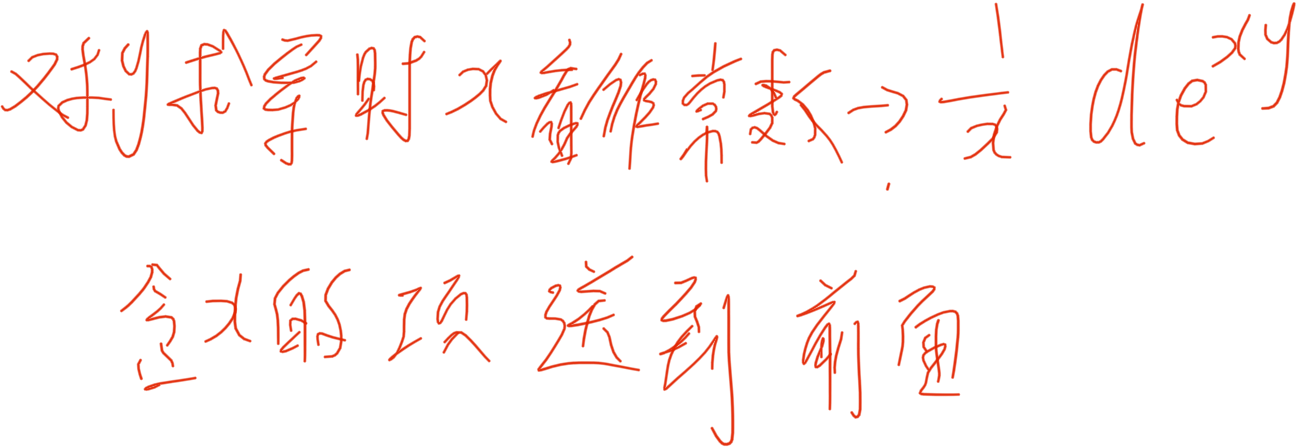 对y求导时x看作常数→$\frac{1}{x} de^{xy}$
含x的项送到前面